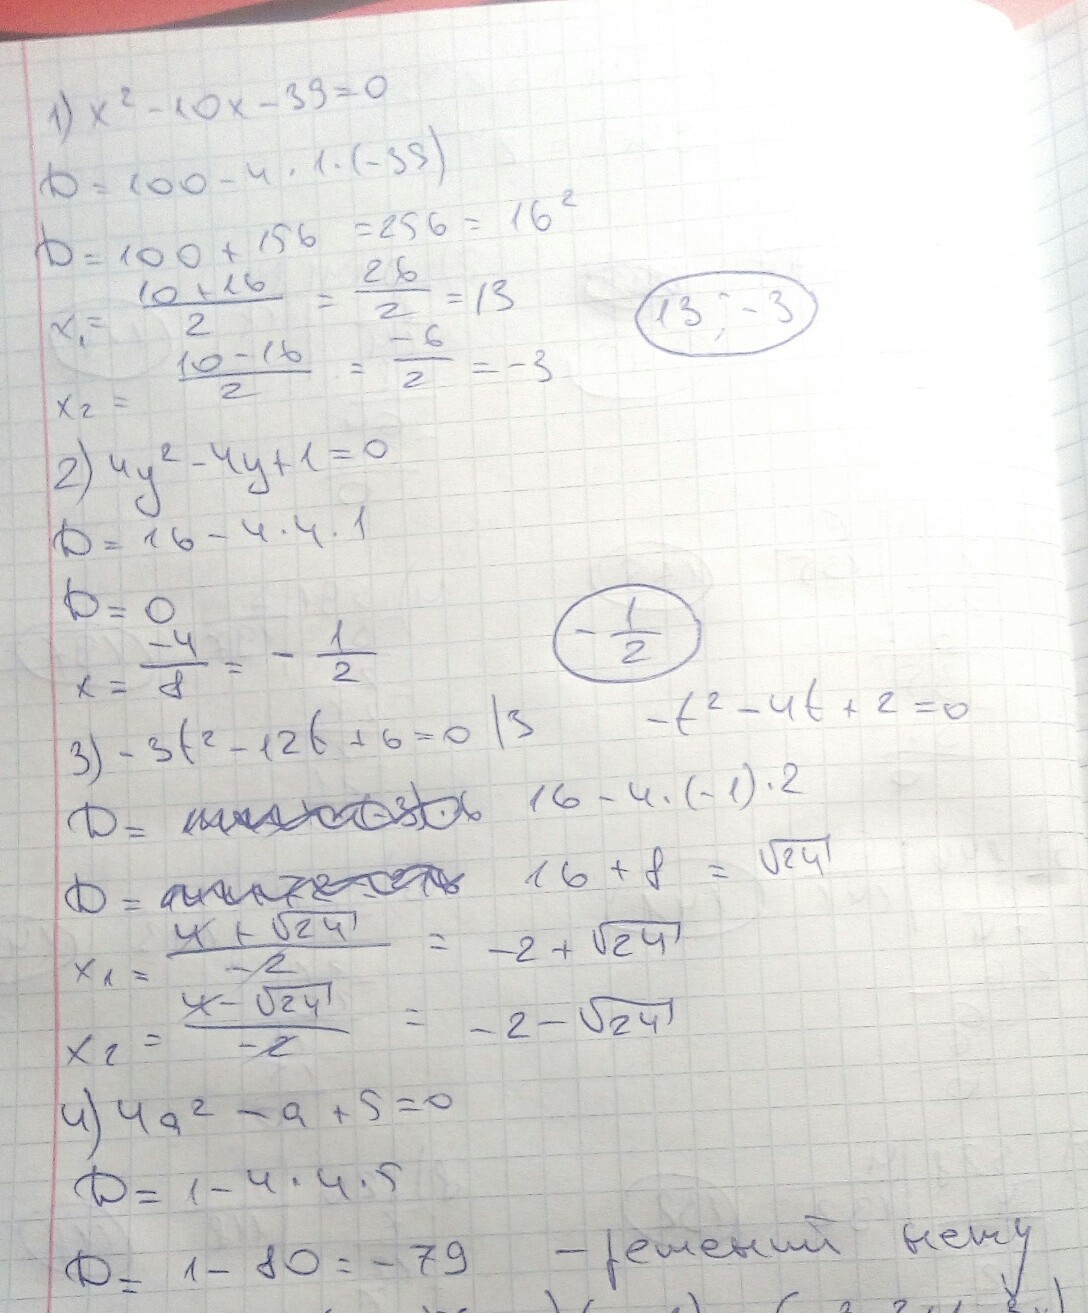 1) x² - 10x - 39 = 0
D = 100 - 4 · 1 · (-39)
D = 100 + 156 = 256 = 16²
x₁ = (10 + 16)/2 = 26/2 = 13
13 ; -3
x₂ = (10 - 16)/2 = -6/2 = -3
2) 4y² - 4y + 1 = 0
D = 16 - 4 · 4 · 1
D = 0
x = -4/8 = - 1/2
- 1/2
3) -3t² - 12t + 6 = 0 |3 -t² - 4t + 2 = 0
D = 16 - 4 · (-1) · 2
D = 16 + 8 = √24
x₁ = (4 + √24)/-2 = -2 + √24
x₂ = (4 - √24)/-2 = -2 - √24
4) 4a² - a + 5 = 0
D = 1 - 4 · 4 · 5
D = 1 - 80 = -79 - решений нету